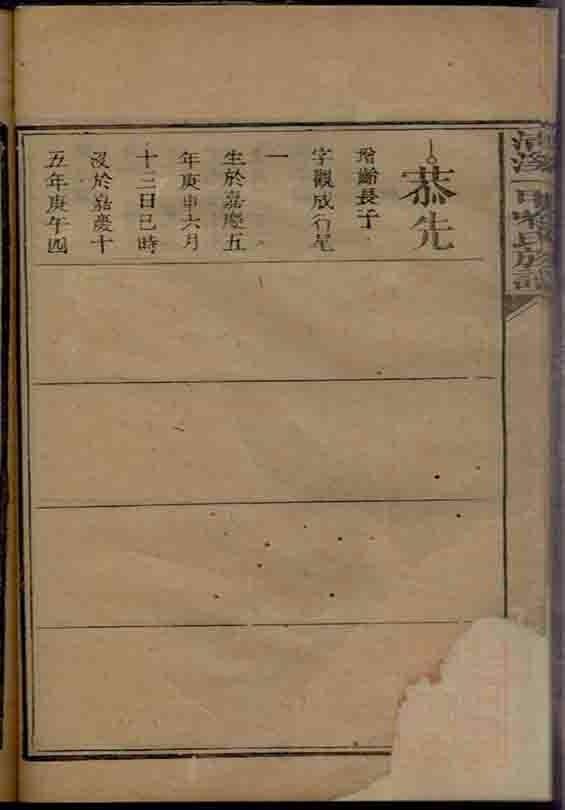 恭先
增齡長子
字觀成行尾
一
生於嘉慶五
年庚申六月
十三日巳時
沒於嘉慶十
五年庚午四
氏族譜